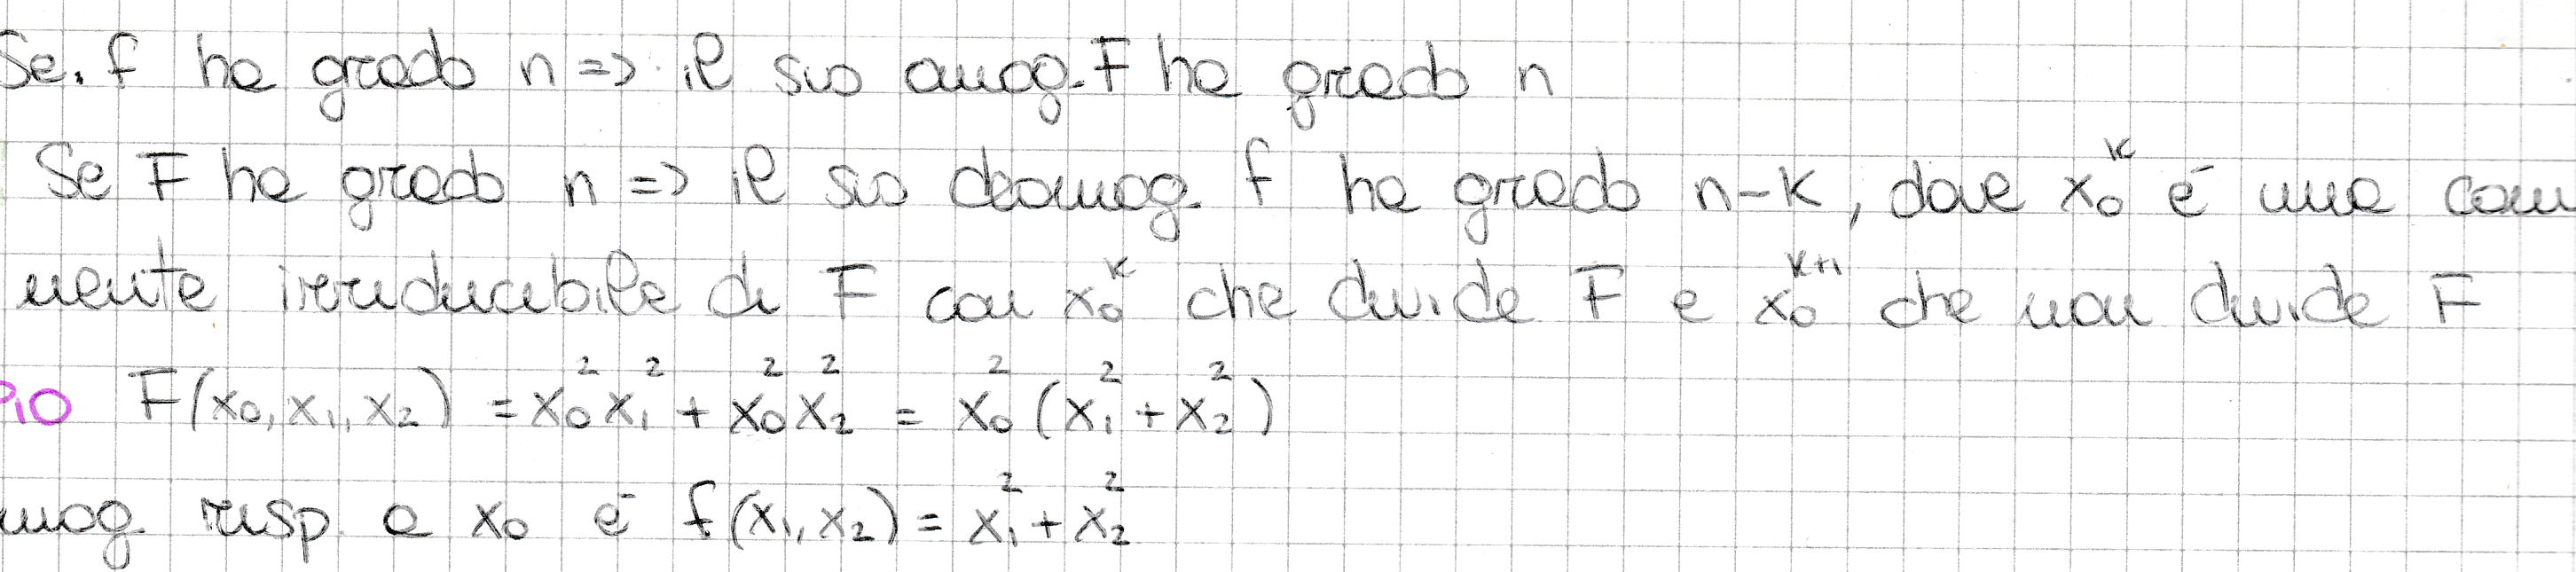 Se. f ha grado n => il suo omog. F ha grado n
Se F ha grado n => il suo deomog. f ha grado n-k, dove x₀ᵏ è una com
nente irriducibile di F con x₀ᵏ che divide F e x₀ᵏ⁺¹ che non divide F
PIO F(x₀, x₁, x₂) = x₀²x₁² + x₀²x₂² = x₀²(x₁² + x₂²)
mog. risp a x₀ è f(x₁, x₂) = x₁² + x₂²